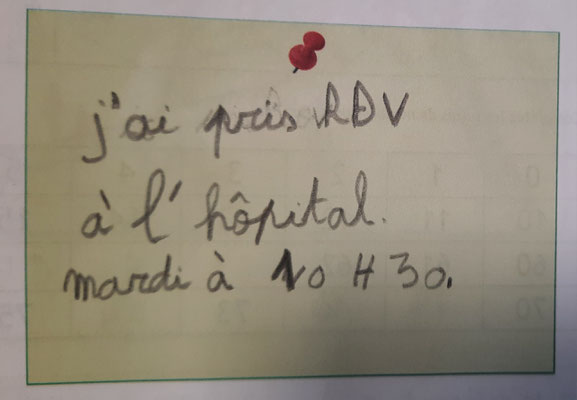 j'ai pris RDV
à l'hôpital.
mardi à 10 H 30.